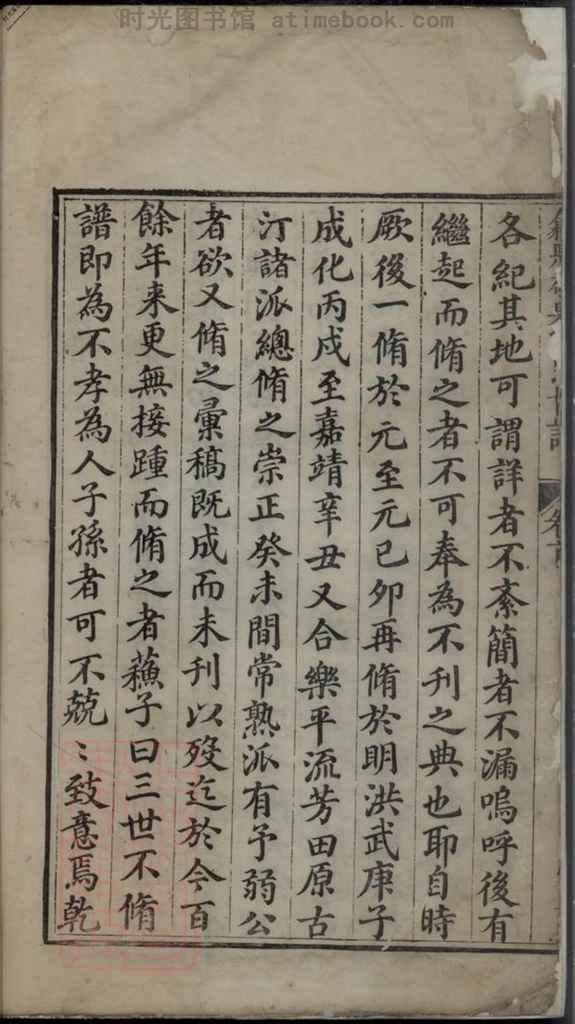 时光图书馆 atimebook.com
各紀其地可謂詳者不紊簡者不漏嗚呼後有
繼起而脩之者不可奉為不刊之典也耶自時
厥後一脩於元至元已卯再脩於明洪武庚子
成化丙戌至嘉靖辛丑又合樂平流芳田原古
汀諸派總脩之崇正癸未間常熟派有予弱公
者欲又脩之彙稿既成而未刊以歿迄於今百
餘年来更無接踵而脩之者蘓子曰三世不脩
譜即為不孝為人子孫者可不兢〻致意焉乾